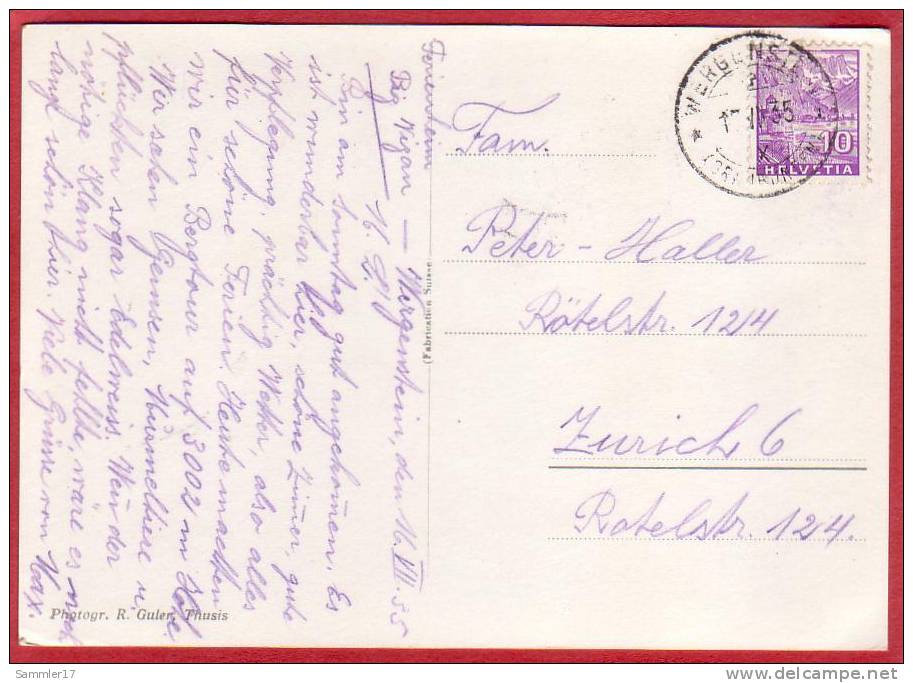 Ferienheim
Piz Vizan — Wergenstein, den 16. VII. 35
Bin am Sonntag gut angekom̅en. Es
ist wunderbar hier, schöne Zim̅er, gute
Verpflegung, prächtig Wetter, also alles
für schöne Ferien. Heute machten
wir ein Bergtour auf 3002 m Höhe.
Wir sahen Gemsen, Murmeltiere u
pflückten sogar Edelweiss. Wen̅ der
nötige Klang nicht fehlte, wäre es noch
lang schön hier. Viele Grüsse von Max.
Photogr. R. Guler, Thusis
(Fabrication Suisse)
WERGENSTEIN
35
(GRAUBÜNDEN)
10
HELVETIA
Fam.
Peter-Haller
Rötelstr. 124
Zürich 6
Rotelstr. 124.
Sammler17
www.delcampe.net